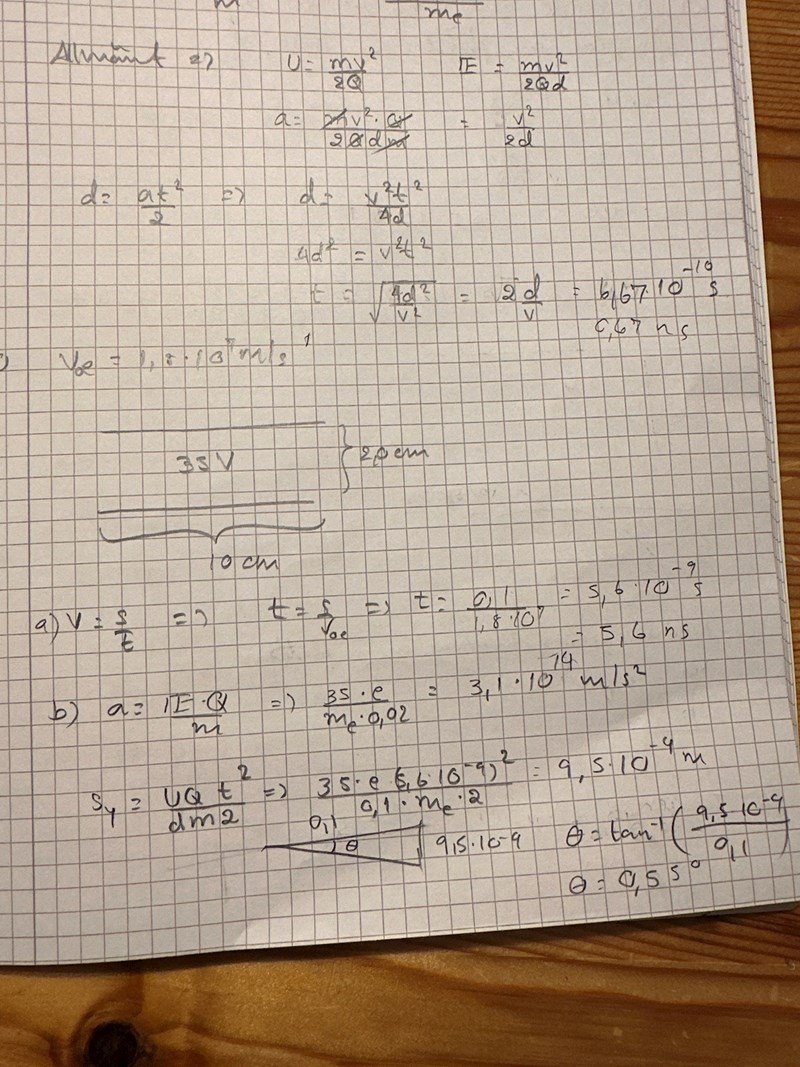 m me
Allmänt => U = mv²/2Q E = mv²/2Qd
a = mv²·Q/2Qdm = v²/2d
d = at²/2 => d = v²t²/4d
4d² = v²t²
t = √(4d²/v²) = 2d/v = 6,67·10⁻¹⁰ s
6,67 ns
) V₀e = 1,8·10⁷ m/s
35V } 20 cm
10 cm
a) V = s/t => t = s/V₀e => t = 0,1/1,8·10⁷ = 5,6·10⁻⁹ s
= 5,6 ns
b) a = E·Q/m => 35·e/me·0,02 = 3,1·10¹⁴ m/s²
Sy = UQt²/dm2 => 35·e·(5,6·10⁻⁹)²/0,1·me·2 = 9,5·10⁻⁴ m
0,1 θ 9,5·10⁻⁴ θ = tan⁻¹(9,5·10⁻⁴/0,1)
θ = 0,55°